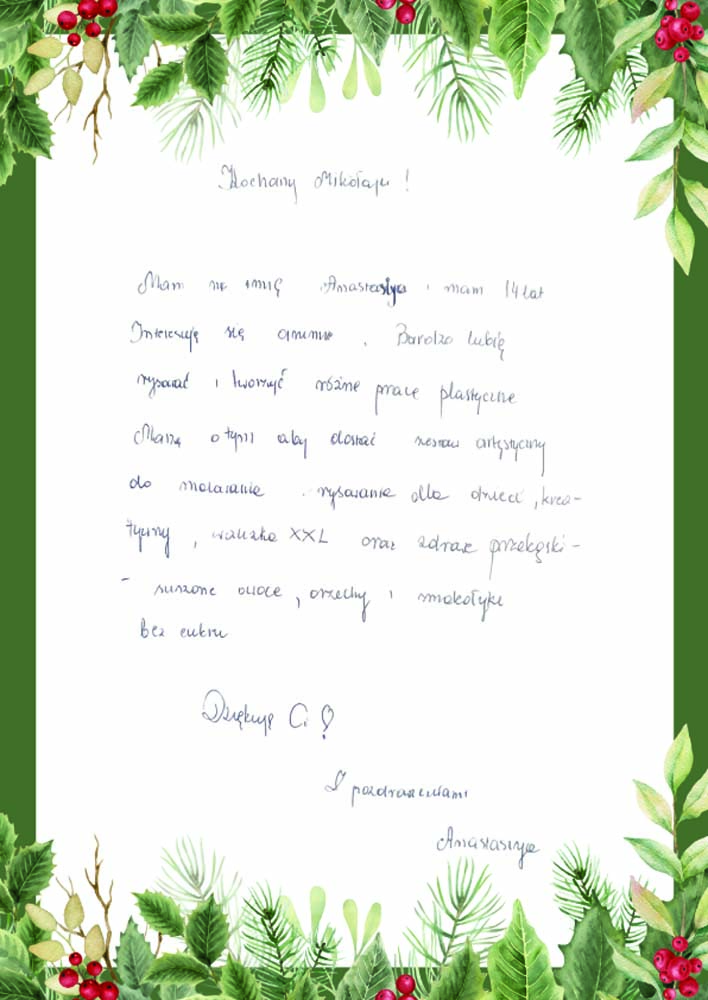 Kochany Mikołaju !
Mam na imię Anastasiya i mam 14 lat
Interesuję się anime . Bardzo lubię
rysować i tworzyć różne prace plastyczne
Marzę o tym aby dostać zestaw artystyczny
do malowania i rysowania dla dzieci , krea-
tywny , XXL oraz zdrowe przekąski -
- suszone owoce , orzechy i smakołyki
bez cukru
Dziękuję Ci !
Z pozdrowieniami
Anastasiya